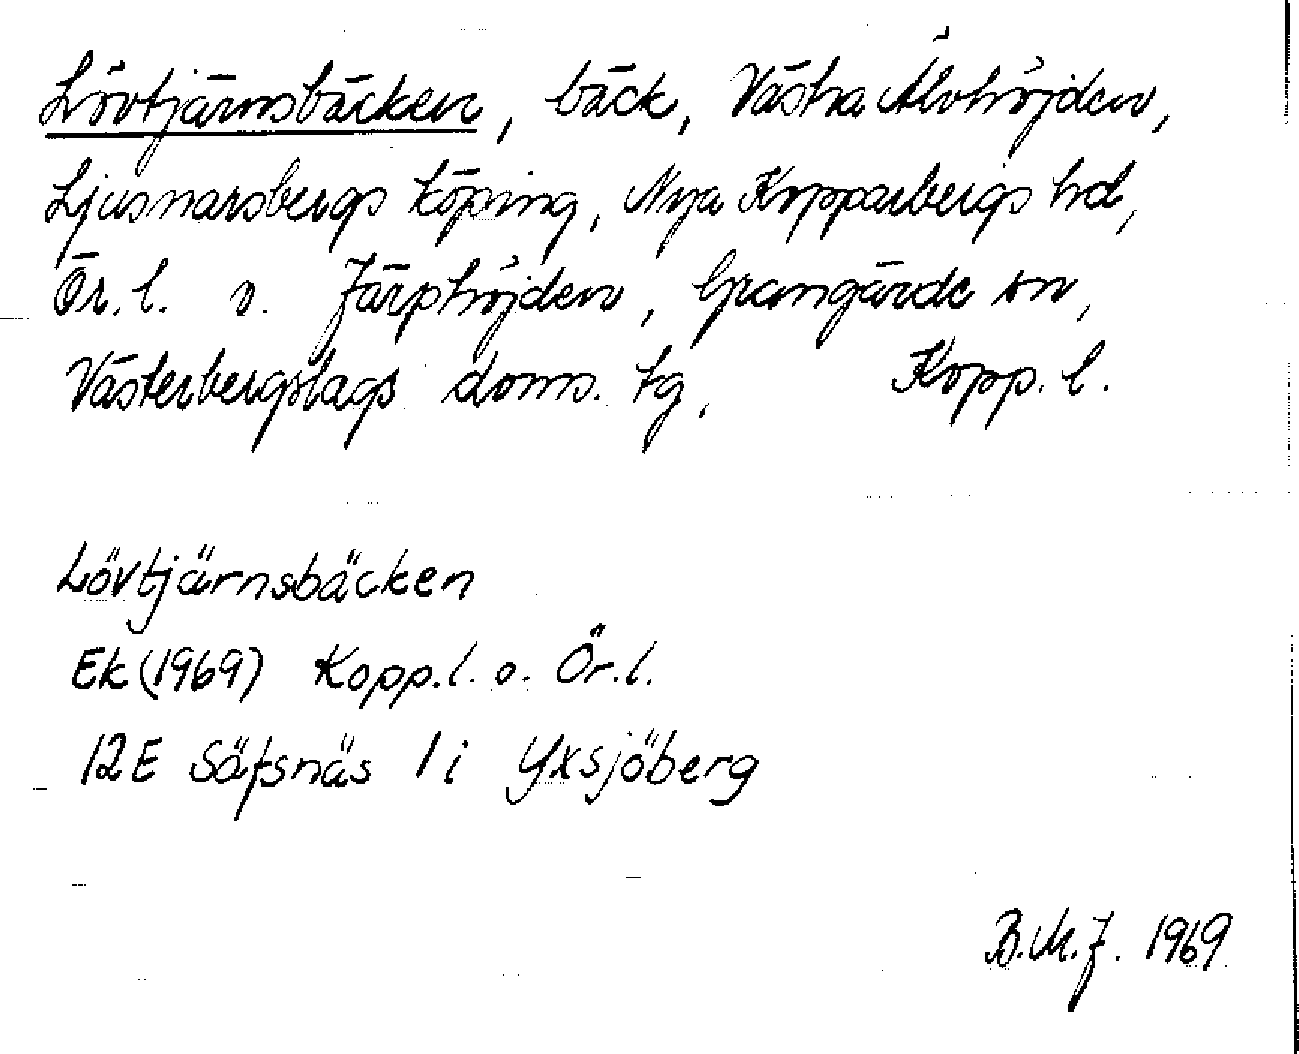 Lövtjärnsbäcken, bäck, Västra Älvhöjden,
Ljusnarsbergs köping, Nya Kopparbergs hd,
Ör. l. o. Järphöjden, Grangärde sn,
Västerbergslags doms. tg, Kopp. l.
Lövtjärnsbäcken
Ek (1969) Kopp.l. o. Ör.l.
12E Säfsnäs 1 i Yxsjöberg
B.M.J. 1969